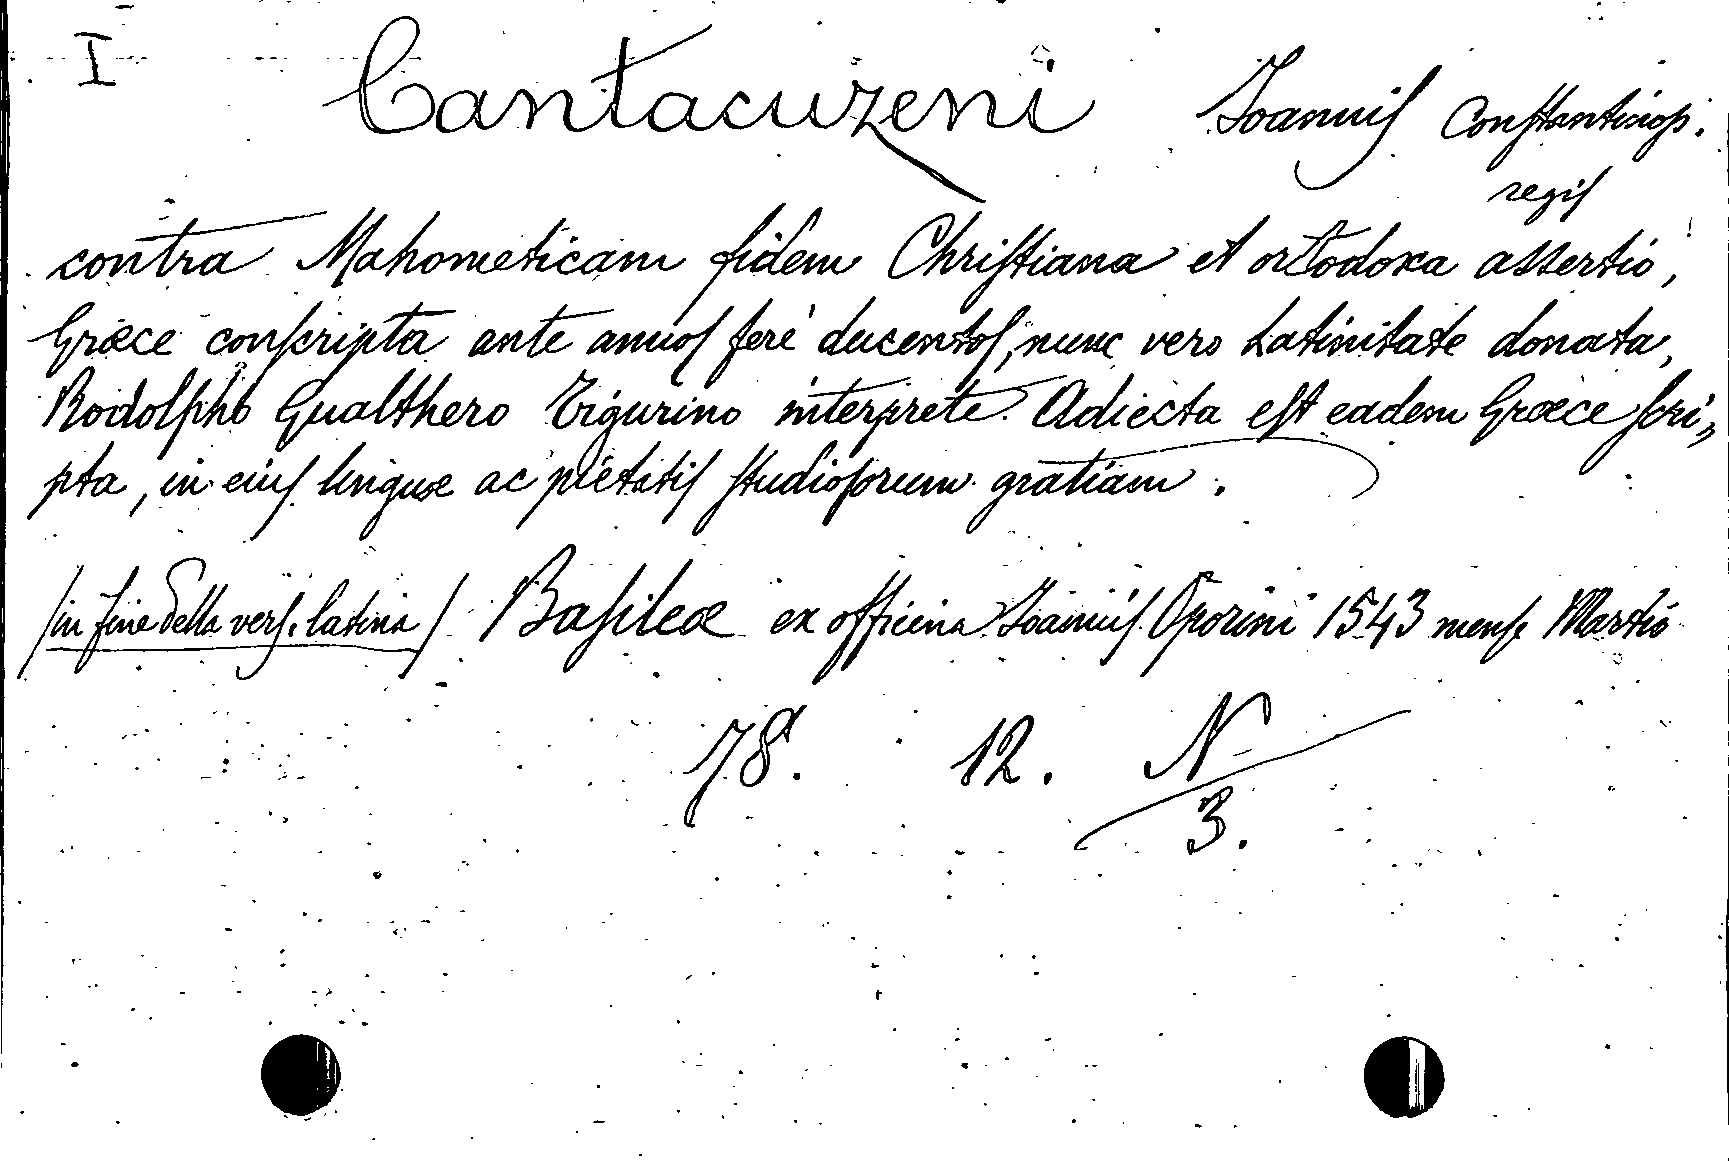 I Cantacuzeni Joannis Constantinop.
regis
contra Mahometicam fidem Christiana et ortodoxa assertio,
Græce conscripta ante annos ferè ducentos, nunc vero Latinitate donata,
Rodolpho Gualthero Tigurino interprete. Adiecta est eadem Græce scri„
pta, in eius linguæ ac pietatis studiosorum gratiam.
/in fine della vers. latina/ Basileæ ex officina Joannis Oporini 1543 mense Martio
78. 12. N
3.